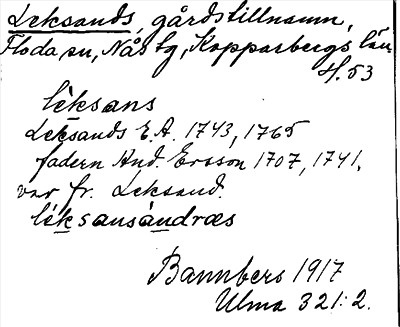 Leksands, gårdstillnamn,
Floda sn, Nås tg, Kopparbergs län
H. 53
lèksans
Leksands E.A. 1743, 1765
fadern And. Ersson 1707, 1741,
var fr. Leksand.
léksansàndræs
Bannbers 1917
Ulma 321:2.